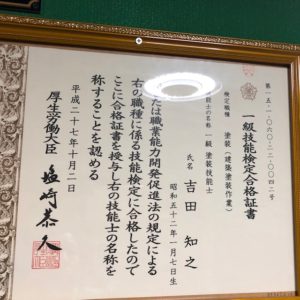 第一五-一-〇六〇-二二-〇〇四二号
一級技能検定合格証書
検定職種 塗装(建築塗装作業)
技能士の名称 一級 塗装技能士
氏名 吉田 知之
昭和五十二年一月七日生
たは職業能力開発促進法の規定による
右の職種に係る技能検定に合格したので
ここに合格証書を授与し右の技能士の名称を
称することを認める
平成二十七年十月二日
厚生労働大臣 塩崎恭久